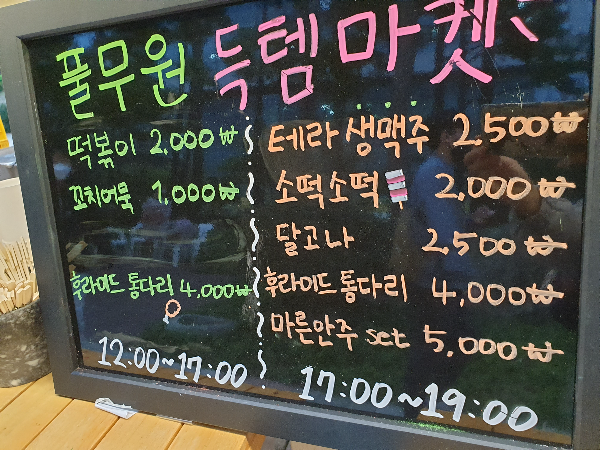 풀무원 득템마켓
떡볶이 2,000₩
꼬치어묵 1,000₩
후라이드 통다리 4,000₩
12:00~17:00
테라 생맥주 2,500₩
소떡소떡 2,000₩
달고나 2,500₩
후라이드통다리 4,000₩
마른안주 set 5,000₩
17:00~19:00